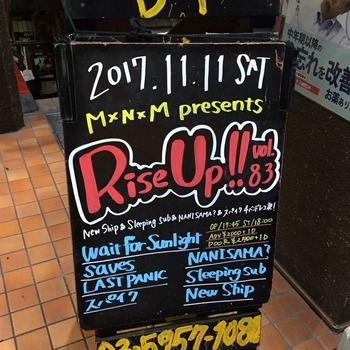 2017.11.11 SAT
M×N×M presents
Rise Up!! vol. 83
New Ship & Sleeping Sub & NANISAMA? &
OP/17:45 ST/18:00
ADV ¥2000+1D
DOOR ¥2500+1D
Wait for Sunlight
Saves
LAST PANIC
スパイク
NANISAMA?
Sleeping Sub
New Ship
中年期以降の
忘れを改善
03-5957-708